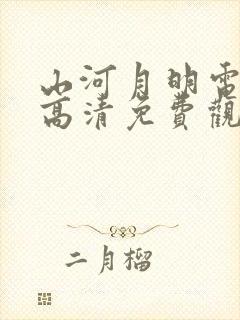 山河月明電
高清免費觀
二月榴